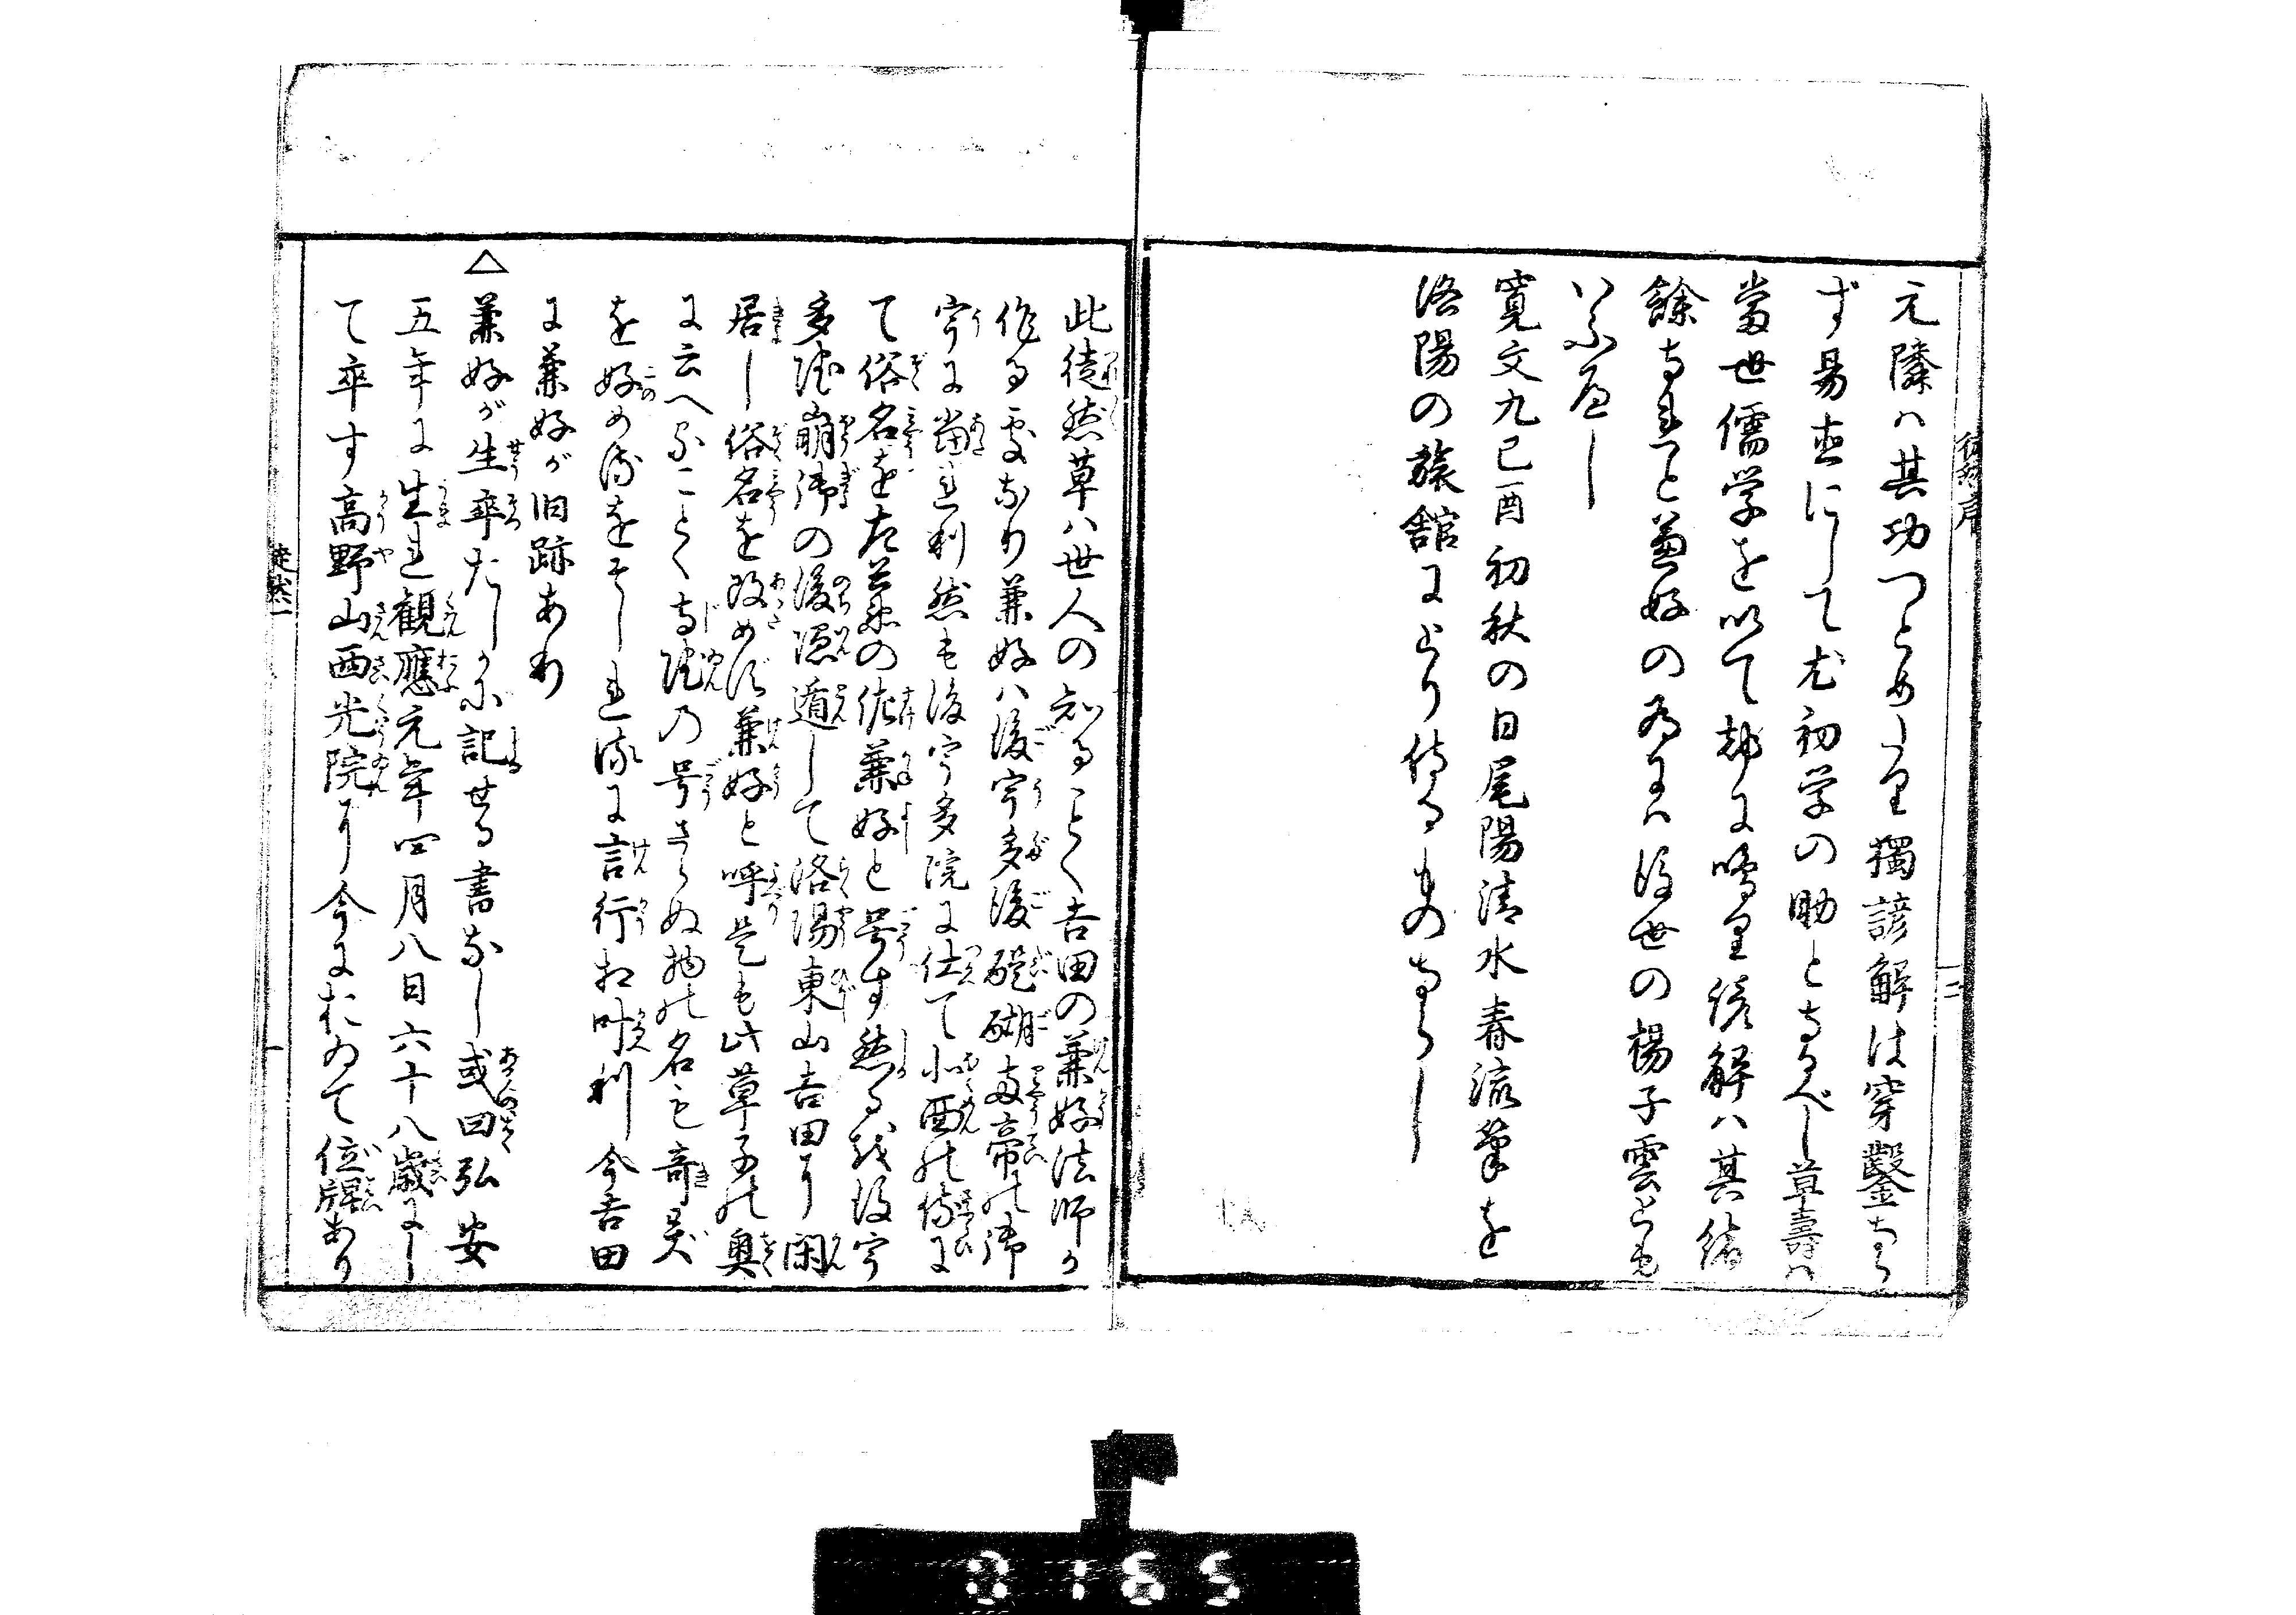 元隣ハ其功つとめたり獨諺解は穿鑿なら
ず易直にして尤初学の助となるべし草壽ハ
當世儒学を以て都に鳴里諺解ハ其緒
餘なれと兼好の為にハ後世の楊子雲とも
いふべし
寛文九己酉初秋の日尾陽清水春流筆を
洛陽の旅舘にとり侍るものならし
此徒然草ハ世人の知ることく吉田の兼好法師か
作る處なり兼好ハ後宇多後醍醐両帝の御
宇に當れり然も後宇多院に仕て北面の侍に
て俗名を左兵衛の佐兼好と号す然るを後宇
多院崩御の後隠遁して洛陽東山吉田に閑
居し俗名を改めず兼好と呼是も此草子の奥
に云へることく寺院の号さらぬ物の名も奇異
を好め時をそしれ儀に言行相叶利今吉田
に兼好が旧跡あり
△兼好が生卒たしかに記せる書なし或曰弘安
五年に生れ観應元年四月八日六十八歳にし
て卒す高野山西光院に今において位牌あり
徒然一
一
二
0165